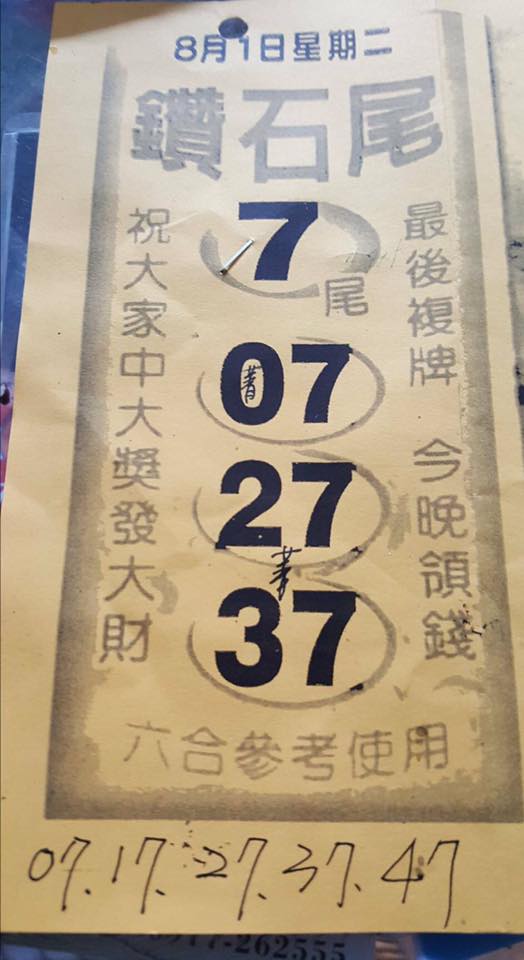 8月1日星期二
鑽石尾
最後複牌 今晚領錢
7尾
07
27
37
祝大家中大獎發大財
六合參考使用
07.17.27.37.47
77-262555